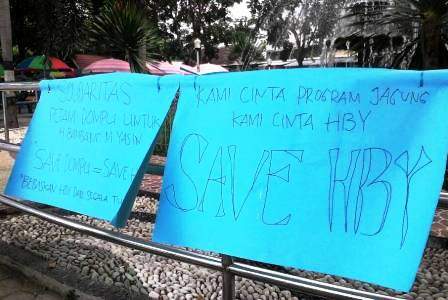 SOLIDARITAS
PETANI DOMPU UNTUK
H BAMBANG M YASIN
"SAVE DOMPU = SAVE H
"BEBASKAN HBY DARI SEGALA TU
KAMI CINTA PROGRAM JAGUNG
KAMI CINTA HBY
SAVE HBY